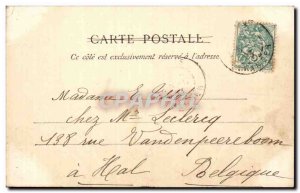 CARTE POSTALE
Ce côté est exclusivement réservé à l'adresse
Madame E.
chez Mr Leclercq
138 rue Vandenpeereboom
à Hal
Belgique